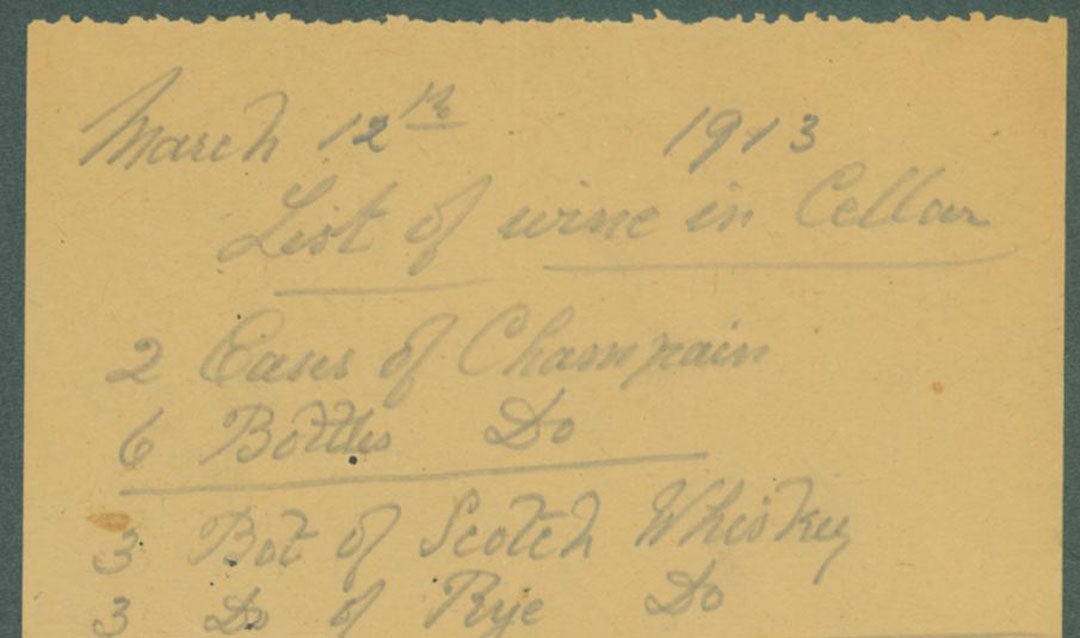 March 12th 1913
List of wine in Cellar
2 Cases of Champain
6 Bottles Do
3 Bot of Scotch Whiskey
3 Do of Rye Do